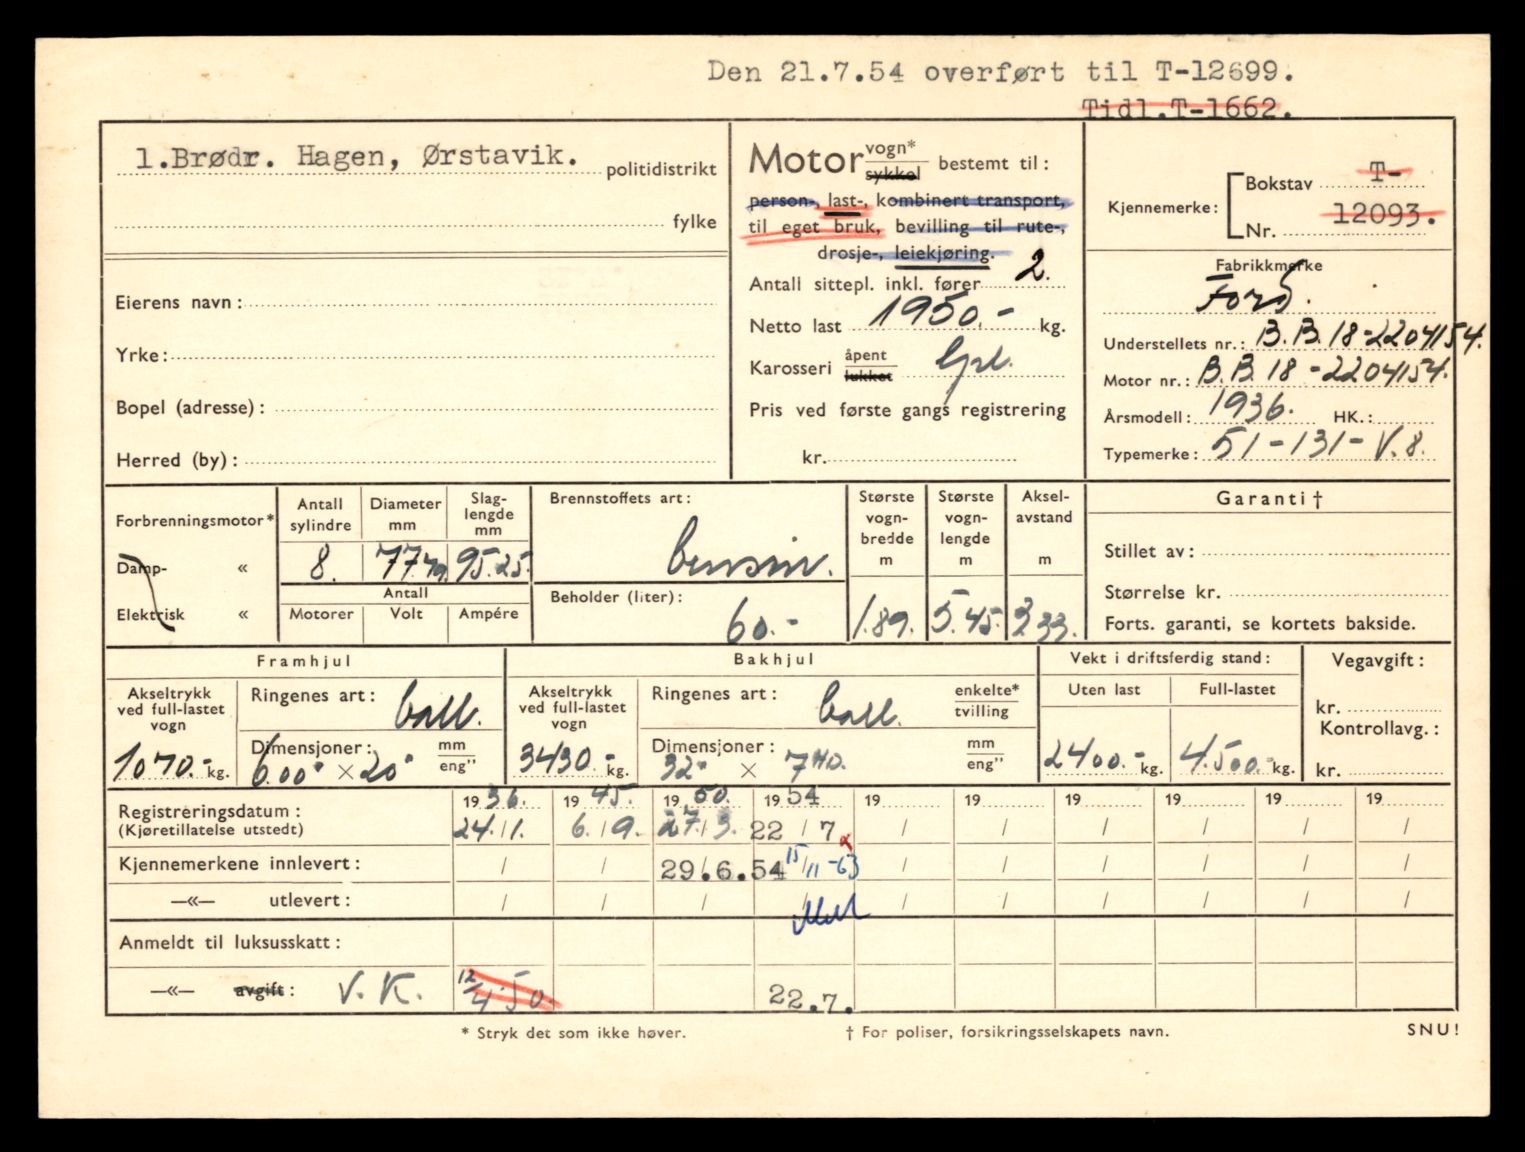 Den 21.7.54 overført til T-12699.
Tidl.T-1662.
1.Brødr. Hagen, Ørstavik. politidistrikt
fylke
Eierens navn:
Yrke:
Bopel (adresse):
Herred (by):
Motor vogn* sykkel bestemt til:
person-, last-, kombinert transport,
til eget bruk, bevilling til rute-,
drosje-, leiekjøring.
Antall sittepl. inkl. fører 2.
Netto last 1950.- kg.
Karosseri åpent lukket
Pris ved første gangs registrering
kr.
Kjennemerke: Bokstav T-
Nr. 12093.
Fabrikkmerke
Ford.
Understellets nr.: B.B.18-2204154.
Motor nr.: B.B.18-2204154.
Årsmodell: 1936. HK.:
Typemerke: 51-131-V.8.
Forbrenningsmotor*
Damp- «
Elektrisk «
Antall sylindre 8.
Diameter mm 77.79.
Slag-lengde mm 95.25.
Antall
Motorer Volt Ampére
Brennstoffets art: bensin.
Beholder (liter): 60.-
Største vogn-bredde m 1.89.
Største vogn-lengde m 5.45.
Aksel-avstand m 3.33.
Garanti †
Stillet av:
Størrelse kr.
Forts. garanti, se kortets bakside.
Framhjul
Akseltrykk ved full-lastet vogn 1070.- kg.
Ringenes art: ball.
Dimensjoner: 6.00" × 20" mm eng"
Bakhjul
Akseltrykk ved full-lastet vogn 3430.- kg.
Ringenes art: ball. enkelte* tvilling
Dimensjoner: 32" × 7 mm eng"
Vekt i driftsferdig stand:
Uten last Full-lastet
2400.- kg. 4.500. kg.
Vegavgift:
kr.
Kontrollavg.:
kr.
Registreringsdatum: 1936. 1945. 1950. 1954 19 19 19 19 19 19
(Kjøretillatelse utstedt) 24./1. 6./9. 27./3. 22/7 / / / / / /
Kjennemerkene innlevert: / / 29.6.54 15/11-63 / / / / / /
—«— utlevert: / / / / / / / / / /
Anmeldt til luksusskatt:
—«— avgift: V. K. 12/4 50 22.7.
* Stryk det som ikke høver.
† For poliser, forsikringsselskapets navn.
SNU!